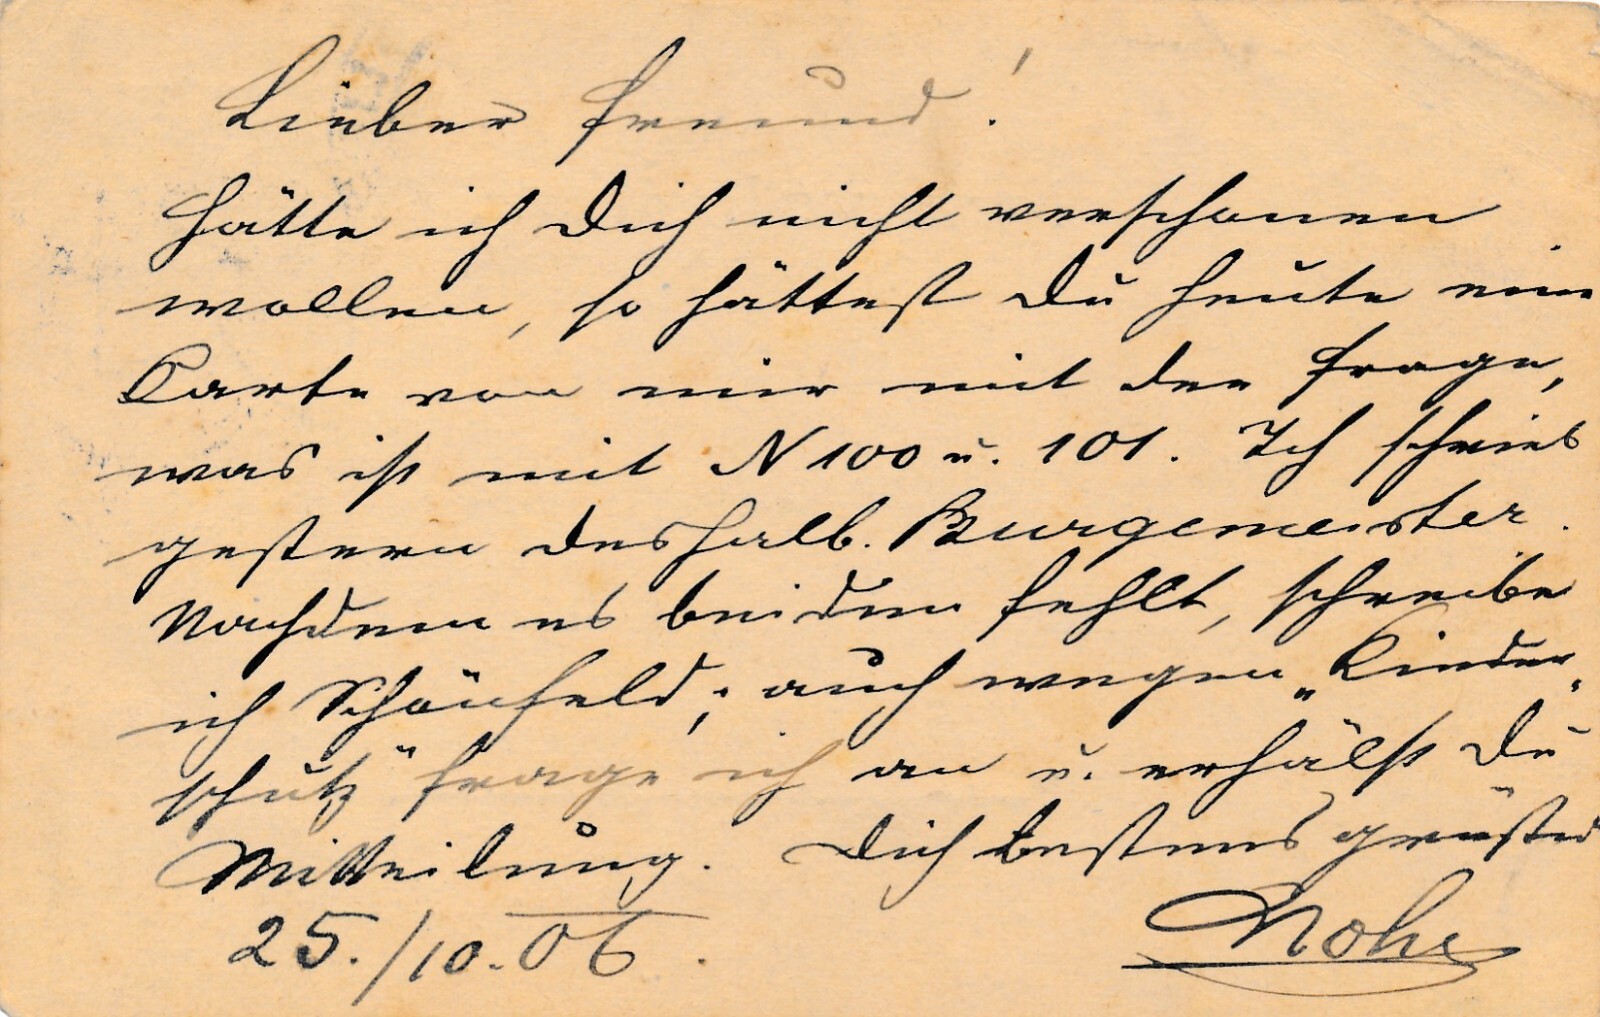 Lieber Freund!
Hätte ich Dich nicht verschonen
wollen, so hättest Du heute eine
Karte von mir mit der Frage,
was ist mit N 100 u. 101. Ich schrieb
gestern deshalb. Burgemeister.
Nachdem es beiden fehlt, schreibe
ich Schönfeld; auch wegen „Kinder„
schutz" frage ich an u. erhälst Du
Mitteilung. Dich bestens grüßend
25./10.06. Nohe